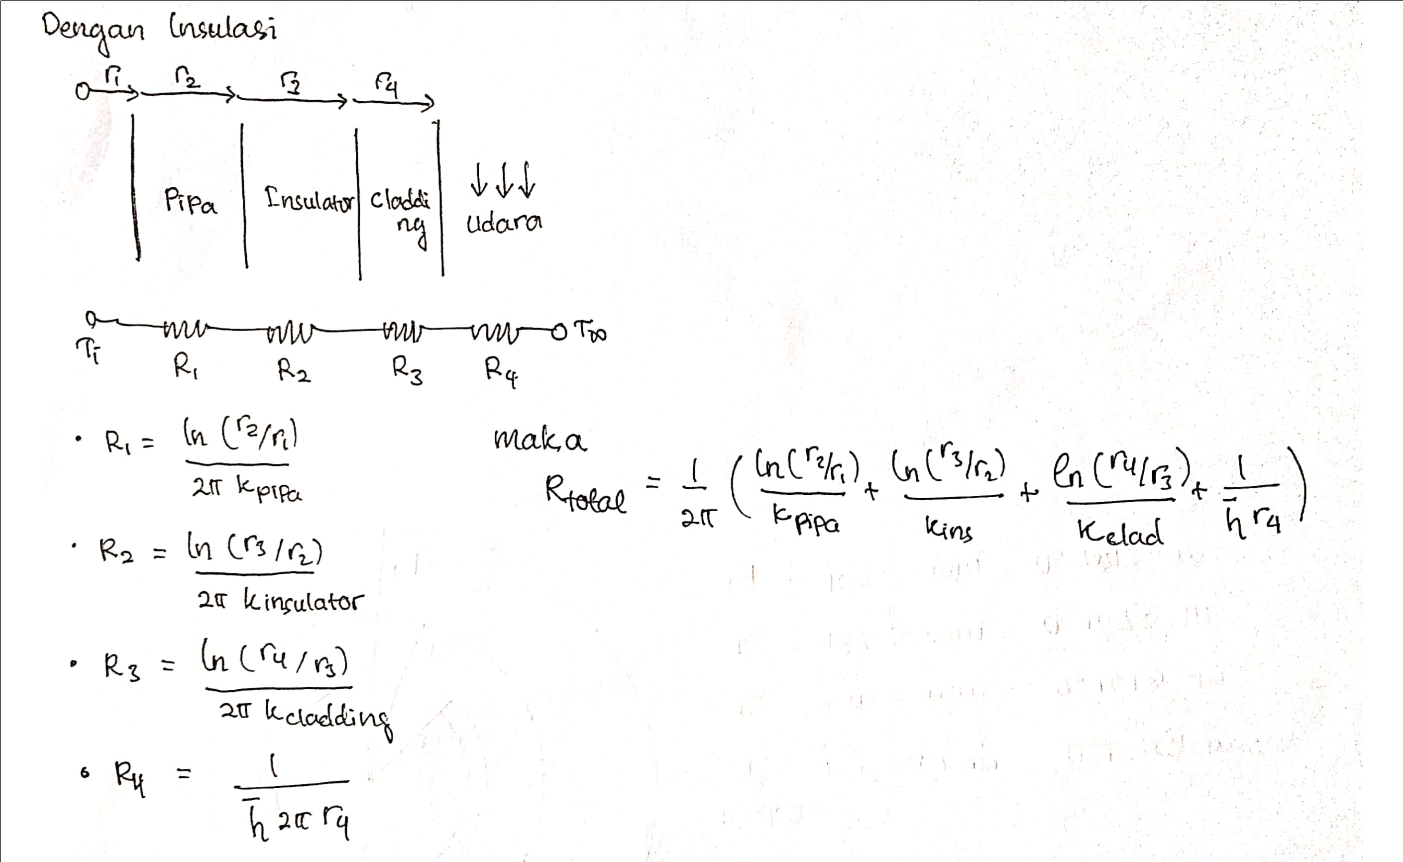 Dengan Insulasi
r1 r2 r3 r4
Pipa Insulator claddi
ng
↓↓↓
udara
Ti T∞
R1 R2 R3 R4
• R1 = ln (r2/r1)
2π kpipa
• R2 = ln (r3/r2)
2π kinsulator
• R3 = ln (r4/r3)
2π kcladding
• R4 = 1
h̄ 2π r4
maka
Rtotal = 1/2π ( ln(r2/r1)/kpipa + ln(r3/r2)/kins + ln(r4/r3)/kclad + 1/h̄ r4 )